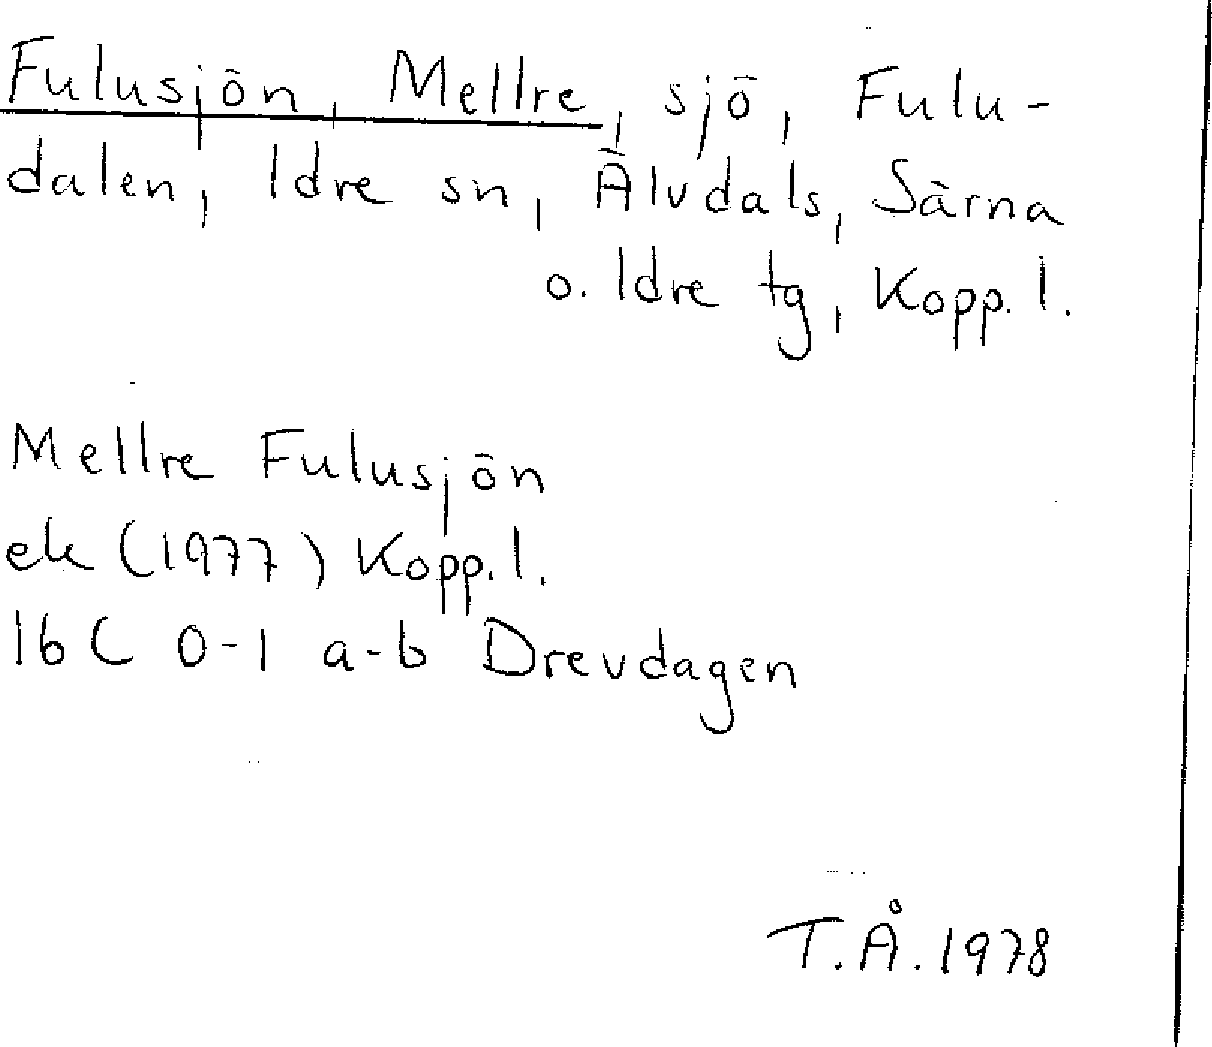 Fulusjön, Mellre, sjö, Fulu-
dalen, Idre sn, Älvdals, Särna
o. Idre tg, Kopp. l.
Mellre Fulusjön
ek (1977) Kopp. l.
16C 0-1 a-b Drevdagen
T.Å. 1978